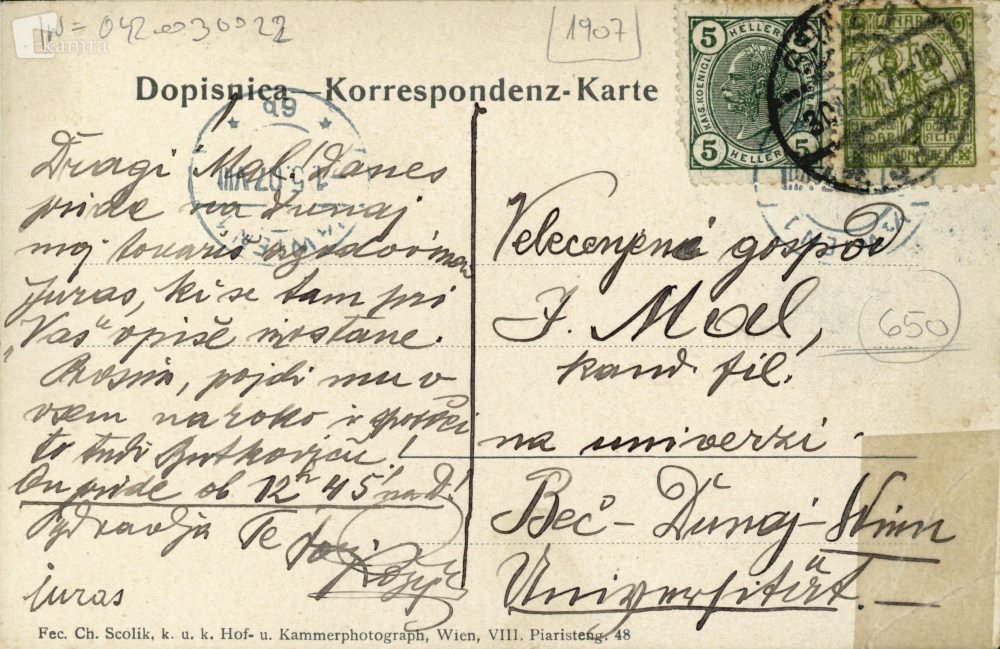 N= 042 0030022
kamra
1907
Dopisnica—Korrespondenz-Karte
5 HELLER 5
KAIS. KOENIGL.
5 HELLER 5
Dragi Mal! Danes
pride na Dunaj
moj tovariš
Juras, ki se tam pri
„Vas“ opiše in ostane.
Prosim, pojdi mu v
vsem na roko in sporoči
to tudi Butkoviču!
On pride ob 12h 45!
Pozdravlja Te
juras
Velecenjeni gospod
J. Mal,
kand. fil.
na univerzi
Beč – Dunaj – Wien
Universität.
650
Fec. Ch. Scolik, k. u. k. Hof- u. Kammerphotograph, Wien, VIII. Piaristeng. 48